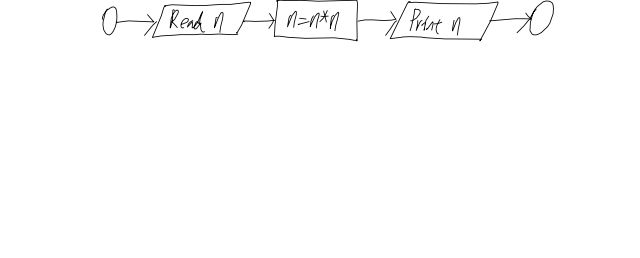 Read n n=n*n Print n